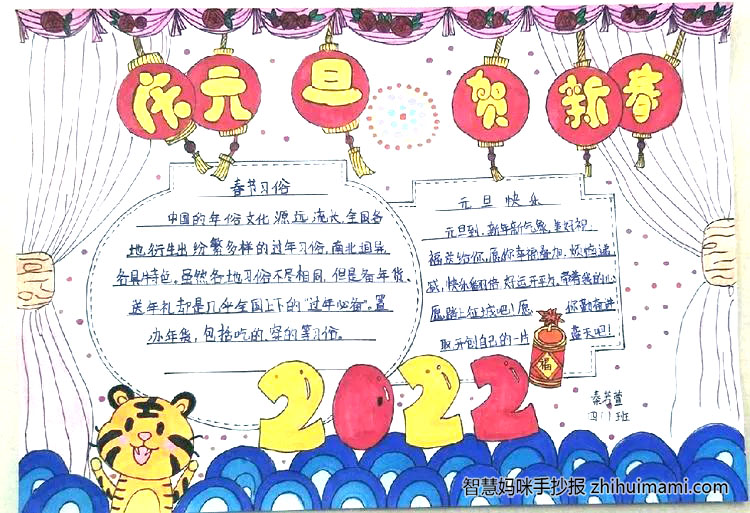 庆元旦贺新春
春节习俗
中国的年俗文化源远流长,全国各
地衍生出纷繁多样的过年习俗,南北迥异,
各具特色。虽然各地习俗不尽相同,但是备年货、
送年礼却是几乎全国上下的“过年必备”。置
办年货,包括吃的、穿的等习俗。
元旦快乐
元旦到,新年新气象,美好祝
福送给你,愿你幸福叠加,烦恼递
减,快乐翻倍,好运开平方。带着我的心
愿踏上征城吧!愿 你勤奋进
取开创自己的一片 蓝天吧!
福
2022
秦芳萱
四11班
智慧妈咪手抄报 zhihuimami.com